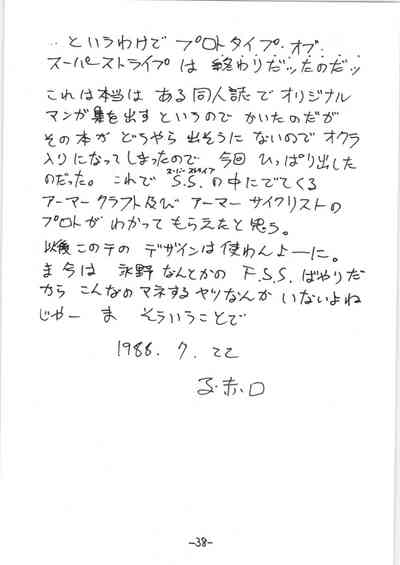 …というわけで プロトタイプ・オブ・
スーパーストライプ は 終わりだッたのだッ
これは本当は ある同人誌で オリジナル
マンガ集を出す というので かいたのだが
その本が どうやら 出そうに ないので オクラ
入りになってしまったので 今回 ひっぱり出した
のだった。これで S.S.の中にでてくる
スーパーストライプ
アーマークラフト及び アーマーサイクリストの
プロトが わかって もらえたと 思う。
以後このテの デザインは使わんよーに。
ま今は 永野なんとかの F.S.S. ばやりだ
から こんなの マネする ヤツなんか いないよね
じゃー ま そういうことで
1988. 7. 22
-38-